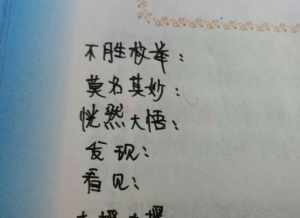 不胜枚举：
莫名其妙：
恍然大悟：
发现：
看见：